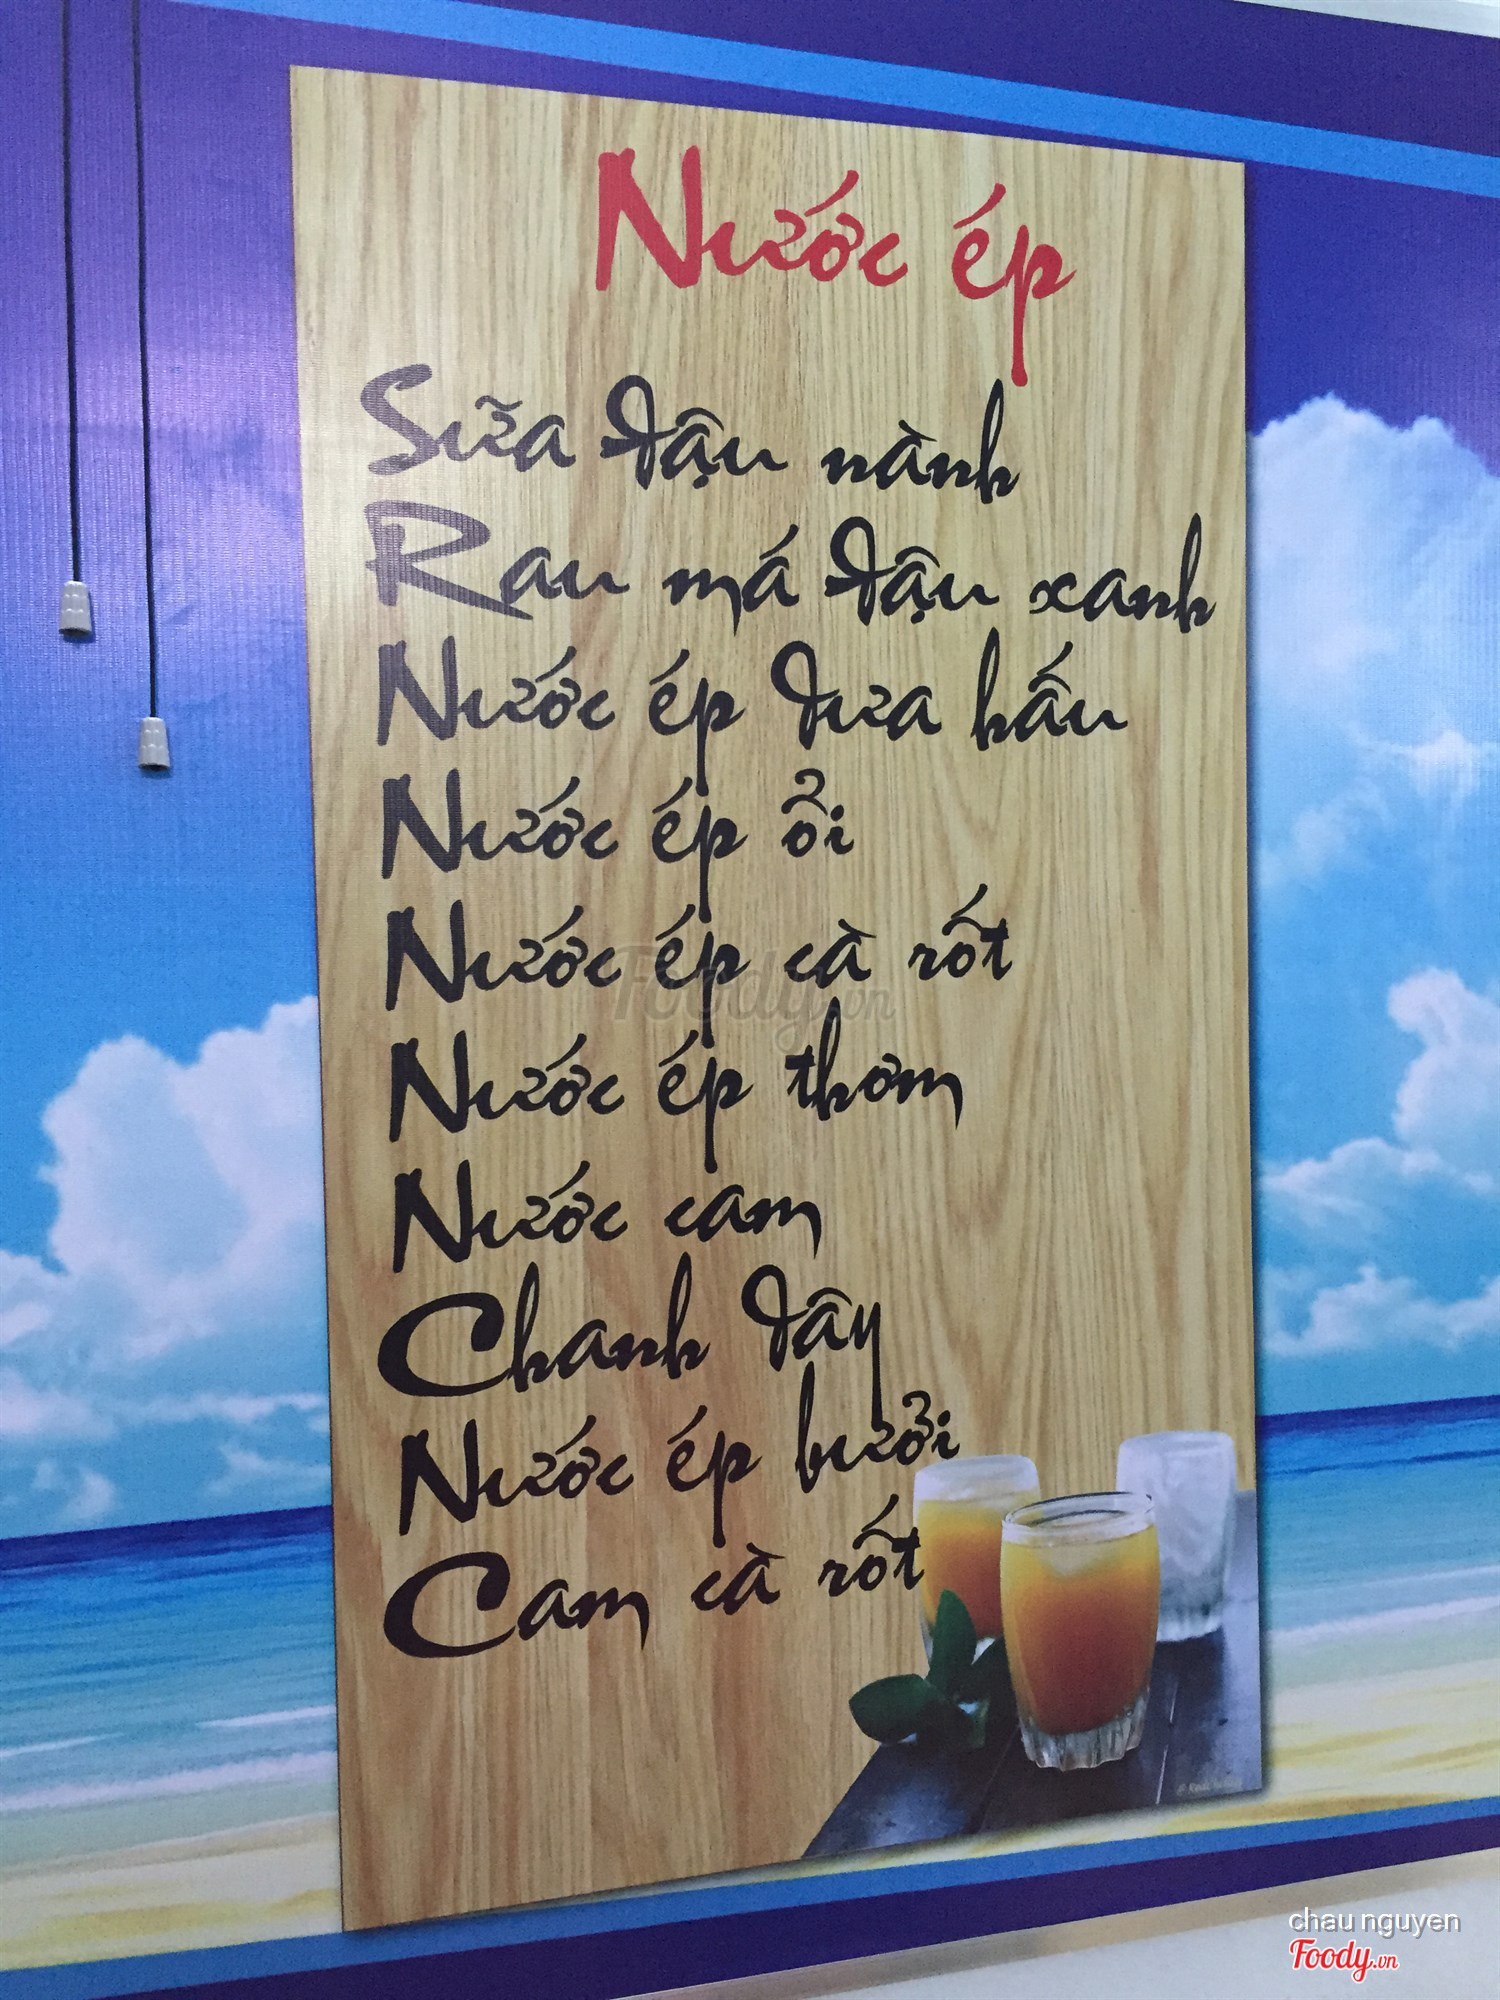 Nước ép
Sữa đậu nành
Rau má đậu xanh
Nước ép dưa hấu
Nước ép ổi
Nước ép cà rốt
Foody.vn
Nước ép thơm
Nước cam
Chanh dây
Nước ép bưởi
Cam cà rốt
chau nguyen
Foody.vn